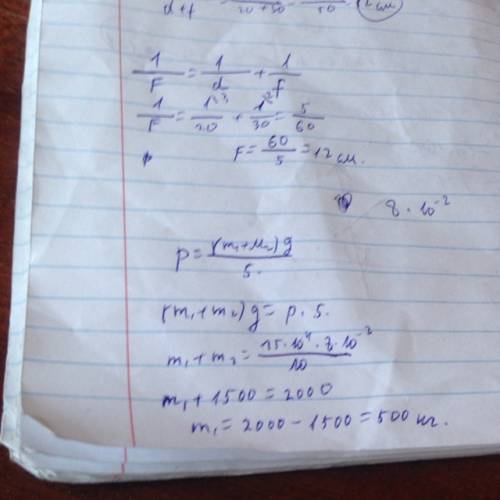 d+f 20+30 50 12 см
1/F = 1/d + 1/f
1/F = 1/20 + 1/30 = 5/60
F = 60/5 = 12 см.
8 · 10⁻²
p = (m₁+m₂)g / S.
(m₁+m₂)g = p · S.
m₁ + m₂ = 15·10⁴ · 8·10⁻² / 10
m₁ + 1500 = 2000
m₁ = 2000 - 1500 = 500 кг.